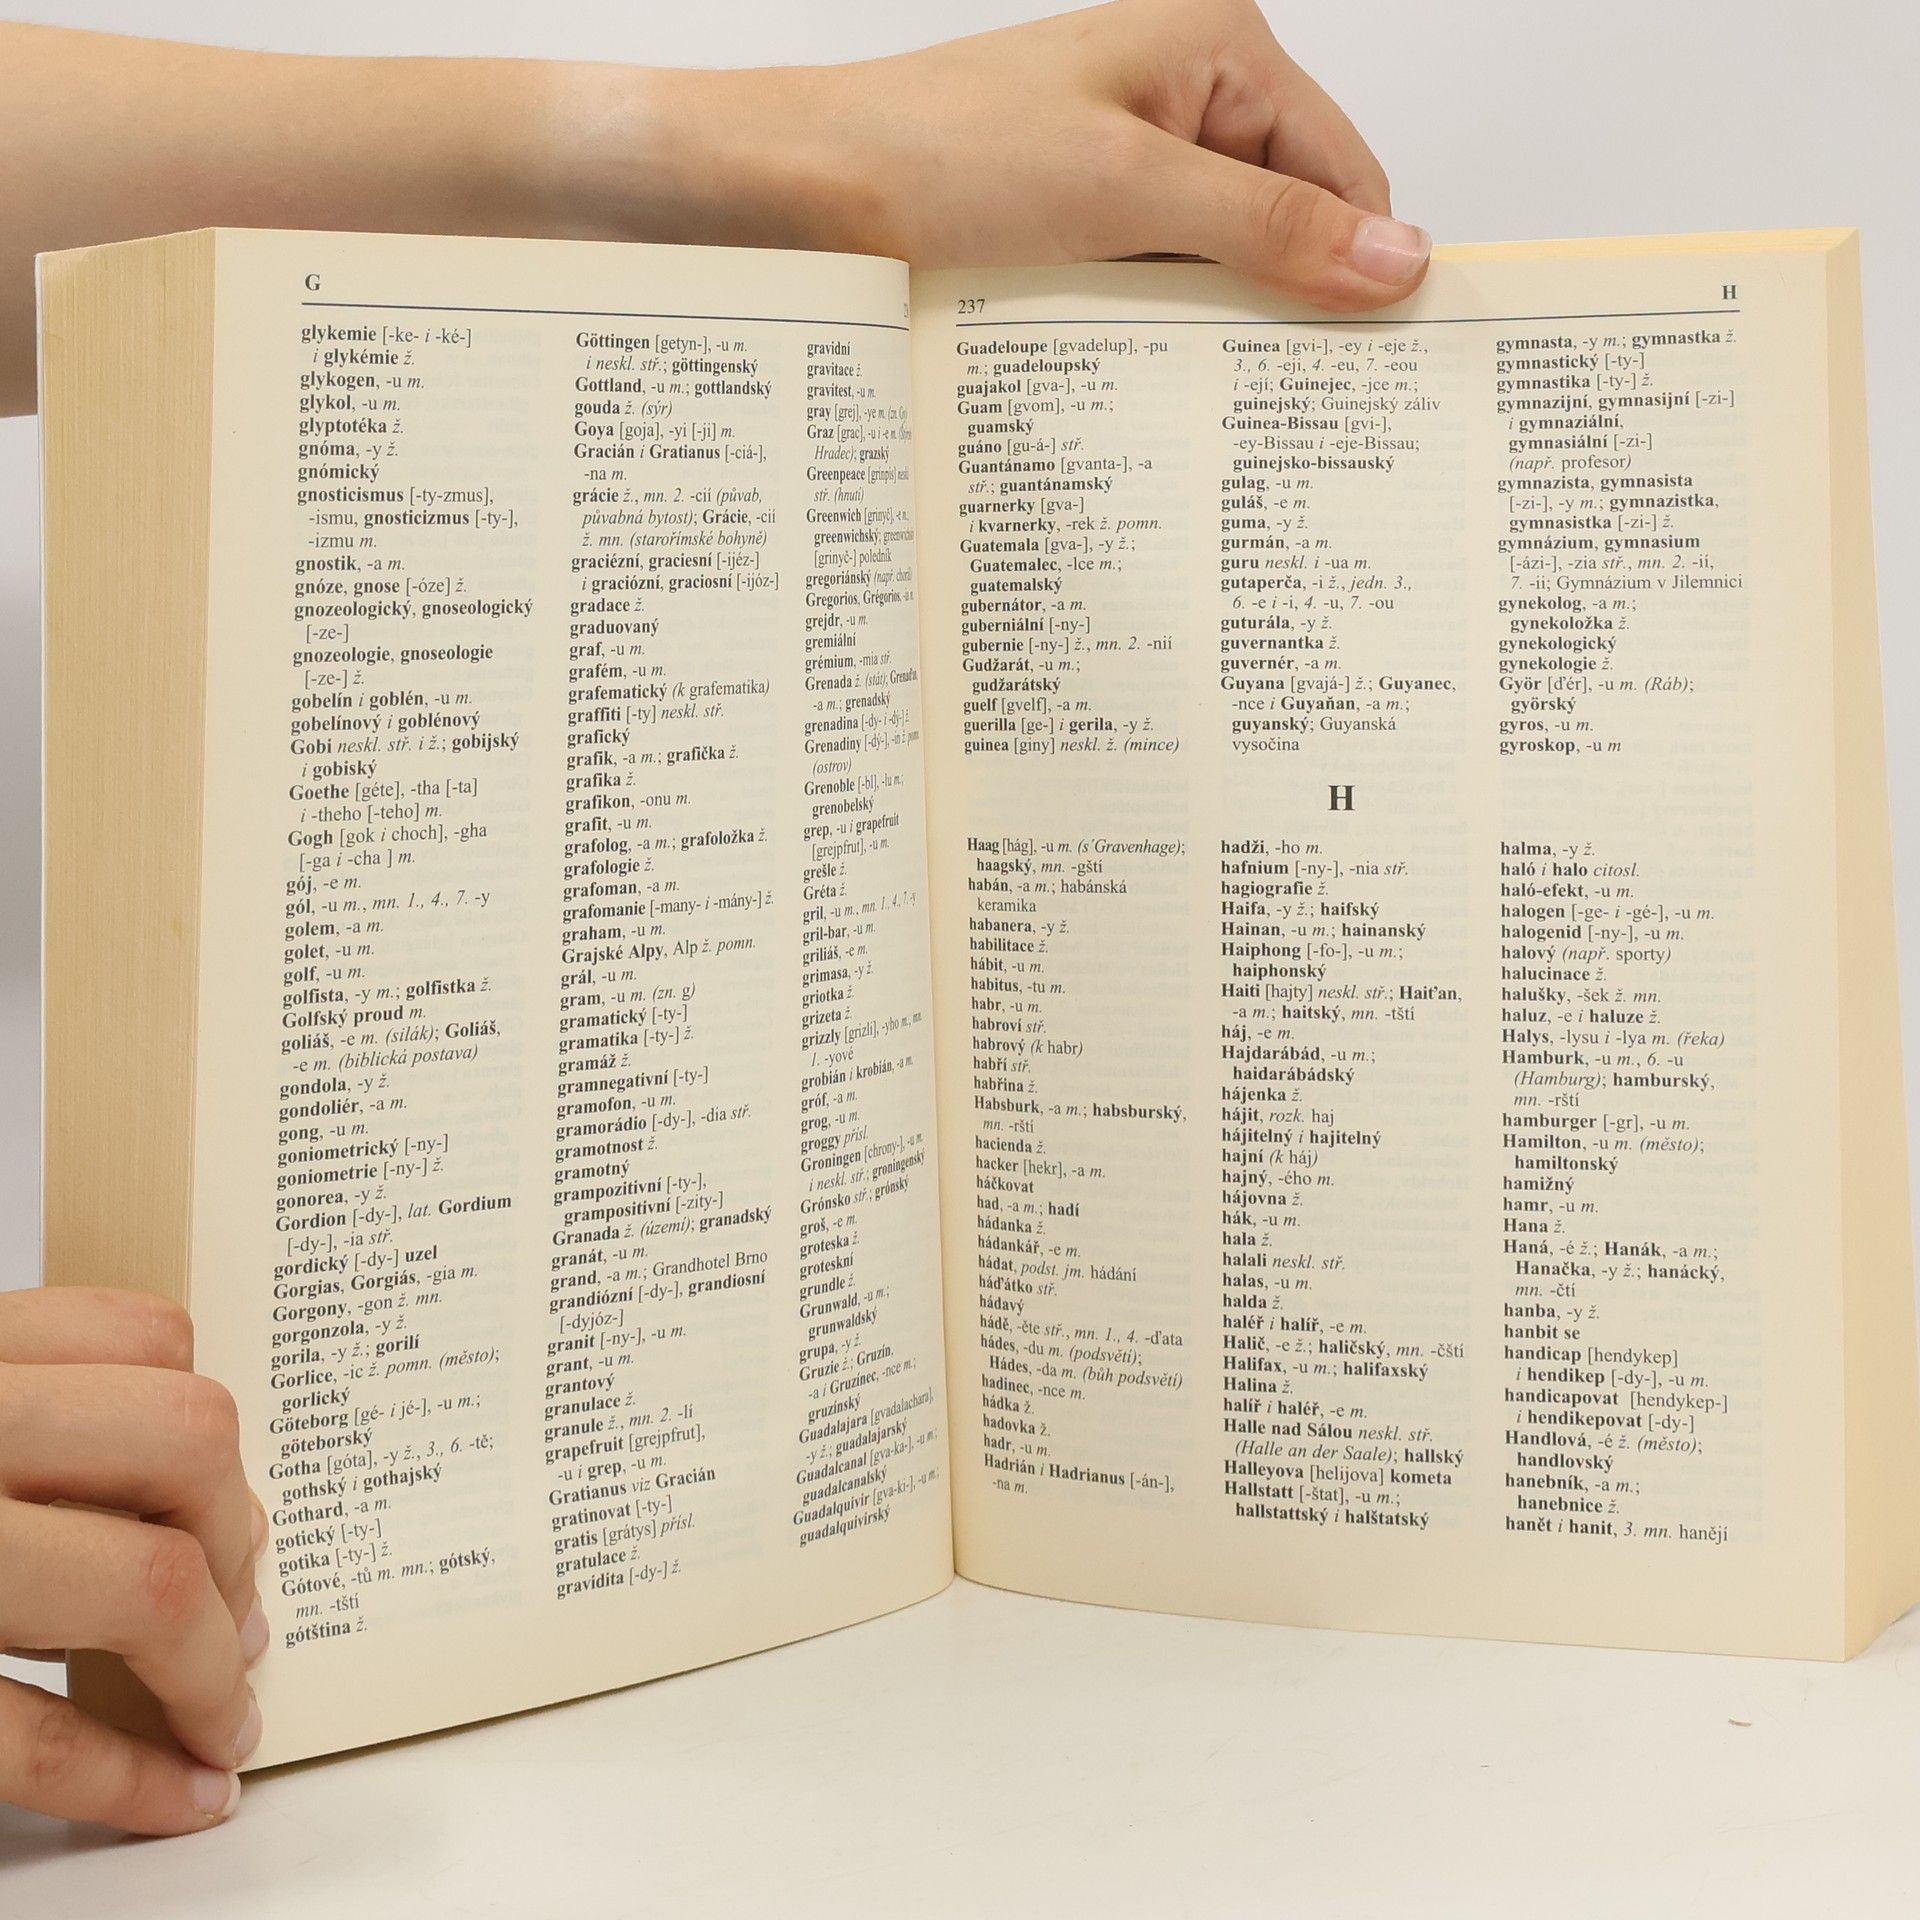 G
glykemie [-ke- i -ké-]
i glykémie ž.
glykogen, -u m.
glykol, -u m.
glyptotéka ž.
gnóma, -y ž.
gnómický
gnosticismus [-ty-zmus],
-ismu, gnosticizmus [-ty-],
-izmu m.
gnostik, -a m.
gnóze, gnose [-óze] ž.
gnozeologický, gnoseologický
[-ze-]
gnozeologie, gnoseologie
[-ze-] ž.
gobelín i goblén, -u m.
gobelínový i goblénový
Gobi neskl. stř. i ž.; gobijský
i gobiský
Goethe [géte], -tha [-ta]
i -theho [-teho] m.
Gogh [gok i choch], -gha
[-ga i -cha ] m.
gój, -e m.
gól, -u m., mn. 1., 4., 7. -y
golem, -a m.
golet, -u m.
golf, -u m.
golfista, -y m.; golfistka ž.
Golfský proud m.
goliáš, -e m. (silák); Goliáš,
-e m. (biblická postava)
gondola, -y ž.
gondoliér, -a m.
gong, -u m.
goniometrický [-ny-]
goniometrie [-ny-] ž.
gonorea, -y ž.
Gordion [-dy-], lat. Gordium
[-dy-], -ia stř.
gordický [-dy-] uzel
Gorgias, Gorgiás, -gia m.
Gorgony, -gon ž. mn.
gorgonzola, -y ž.
gorila, -y ž.; gorilí
Gorlice, -ic ž. pomn. (město);
gorlický
Göteborg [gé- i jé-], -u m.;
göteborský
Gotha [góta], -y ž., 3., 6. -tě;
gothský i gothajský
Gothard, -a m.
gotický [-ty-]
gotika [-ty-] ž.
Gótové, -tů m. mn.; gótský,
mn. -tští
gótština ž.
Göttingen [getyn-], -u m.
i neskl. stř.; göttingenský
Gottland, -u m.; gottlandský
gouda ž. (sýr)
Goya [goja], -yi [-ji] m.
Gracián i Gratianus [-ciá-],
-na m.
grácie ž., mn. 2. -cií (půvab,
půvabná bytost); Grácie, -cií
ž. mn. (starořímské bohyně)
graciézní, graciesní [-ijéz-]
i graciózní, graciosní [-ijóz-]
gradace ž.
graduovaný
graf, -u m.
grafém, -u m.
grafematický (k grafematika)
graffiti [-ty] neskl. stř.
grafický
grafik, -a m.; grafička ž.
grafika ž.
grafikon, -onu m.
grafit, -u m.
grafolog, -a m.; grafoložka ž.
grafologie ž.
grafoman, -a m.
grafomanie [-many- i -mány-] ž.
graham, -u m.
Grajské Alpy, Alp ž. pomn.
grál, -u m.
gram, -u m. (zn. g)
gramatický [-ty-]
gramatika [-ty-] ž.
gramáž ž.
gramnegativní [-ty-]
gramofon, -u m.
gramorádio [-dy-], -dia stř.
gramotnost ž.
gramotný
grampozitivní [-ty-],
grampositivní [-zity-]
Granada ž. (území); granadský
granát, -u m.
grand, -a m.; Grandhotel Brno
grandiózní [-dy-], grandiosní
[-dyjóz-]
granit [-ny-], -u m.
grant, -u m.
grantový
granulace ž.
granule ž., mn. 2. -lí
grapefruit [grejpfrut],
-u i grep, -u m.
Gratianus viz Gracián
gratinovat [-ty-]
gratis [grátys] přísl.
gratulace ž.
gravidita [-dy-] ž.
gravidní
gravitace ž.
gravitest, -u m.
gray [grej], -ye m. (zn. Gy)
Graz [grac], -u i -e m.
Hradec); grazský
Greenpeace [grínpís] neskl.
stř. (hnutí)
Greenwich [grinyč], -e m.
greenwichský;
[grinyč-] poledník
gregoriánský (např. chorál)
Gregorios, Grégorios, -ia m.
grejdr, -u m.
gremiální
grémium, -mia stř.
Grenada ž. (stát);
-a m.; grenadský
grenadina [-dy- i -dý-] ž.
Grenadiny [-dý-], -in ž. pomn.
(ostrov)
Grenoble [-bl], -lu m.;
grenobelský
grep, -u i grapefruit
[grejpfrut], -u m.
grešle ž.
Gréta ž.
gril, -u m., mn. 1., 4., 7. -y
gril-bar, -u m.
griliáš, -e m.
grimasa, -y ž.
griotka ž.
grizeta ž.
grizzly [grizli], -yho m., mn.
1. -yové
grobián i krobián, -a m.
gróf, -a m.
grog, -u m.
groggy přísl.
Groningen [chrony-], -u m.
i neskl. stř.; groningenský
Grónsko stř.; grónský
groš, -e m.
groteska ž.
groteskní
grundle ž.
Grunwald, -u m.;
grunwaldský
grupa, -y ž.
Gruzie ž.; Gruzín,
-a i Gruzínec, -nce m.;
gruzínský
Guadalajara [gvadalachara],
-y ž.; guadalajarský
Guadalcanal [gva-ka-], -u m.;
guadalcanalský
Guadalquivir [gva-ki-], -u m.;
guadalquivirský
237
H
Guadeloupe [gvadelup], -pu
m.; guadeloupský
guajakol [gva-], -u m.
Guam [gvom], -u m.;
guamský
guáno [gu-á-] stř.
Guantánamo [gvanta-], -a
stř.; guantánamský
guarnerky [gva-]
i kvarnerky, -rek ž. pomn.
Guatemala [gva-], -y ž.;
Guatemalec, -lce m.;
guatemalský
gubernátor, -a m.
guberniální [-ny-]
gubernie [-ny-] ž., mn. 2. -nií
Gudžarát, -u m.;
gudžarátský
guelf [gvelf], -a m.
guerilla [ge-] i gerila, -y ž.
guinea [giny] neskl. ž. (mince)
Guinea [gvi-], -ey i -eje ž.,
3., 6. -eji, 4. -eu, 7. -eou
i -ejí; Guinejec, -jce m.;
guinejský; Guinejský záliv
Guinea-Bissau [gvi-],
-ey-Bissau i -eje-Bissau;
guinejsko-bissauský
gulag, -u m.
guláš, -e m.
guma, -y ž.
gurmán, -a m.
guru neskl. i -ua m.
gutaperča, -i ž., jedn. 3.,
6. -e i -i, 4. -u, 7. -ou
guturála, -y ž.
guvernantka ž.
guvernér, -a m.
Guyana [gvajá-] ž.; Guyanec,
-nce i Guyaňan, -a m.;
guyanský; Guyanská
vysočina
gymnasta, -y m.; gymnastka ž.
gymnastický [-ty-]
gymnastika [-ty-] ž.
gymnazijní, gymnasijní [-zi-]
i gymnaziální,
gymnasiální [-zi-]
(např. profesor)
gymnazista, gymnasista
[-zi-], -y m.; gymnazistka,
gymnasistka [-zi-] ž.
gymnázium, gymnasium
[-ázi-], -zia stř., mn. 2. -ií,
7. -ii; Gymnázium v Jilemnici
gynekolog, -a m.;
gynekoložka ž.
gynekologický
gynekologie ž.
Györ [ďér], -u m. (Ráb);
györský
gyros, -u m.
gyroskop, -u m
H
Haag [hág], -u m. (s´Gravenhage);
haagský, mn. -gští
habán, -a m.; habánská
keramika
habanera, -y ž.
habilitace ž.
hábit, -u m.
habitus, -tu m.
habr, -u m.
habroví stř.
habrový (k habr)
habří stř.
habřina ž.
Habsburk, -a m.; habsburský,
mn. -rští
hacienda ž.
hacker [hekr], -a m.
háčkovat
had, -a m.; hadí
hádanka ž.
hádankář, -e m.
hádat, podst. jm. hádání
háďátko stř.
hádavý
hádě, -ěte stř., mn. 1., 4. -ďata
hádes, -du m. (podsvětí);
Hádes, -da m. (bůh podsvětí)
hadinec, -nce m.
hádka ž.
hadovka ž.
hadr, -u m.
Hadrián i Hadrianus [-án-],
-na m.
hadži, -ho m.
hafnium [-ny-], -nia stř.
hagiografie ž.
Haifa, -y ž.; haifský
Hainan, -u m.; hainanský
Haiphong [-fo-], -u m.;
haiphonský
Haiti [hajty] neskl. stř.; Haiťan,
-a m.; haitský, mn. -tští
háj, -e m.
Hajdarábád, -u m.;
haidarábádský
hájenka ž.
hájit, rozk. haj
hájitelný i hajitelný
hajní (k háj)
hajný, -ého m.
hájovna ž.
hák, -u m.
hala ž.
halali neskl. stř.
halas, -u m.
halda ž.
haléř i halíř, -e m.
Halič, -e ž.; haličský, mn. -čští
Halifax, -u m.; halifaxský
Halina ž.
halíř i haléř, -e m.
Halle nad Sálou neskl. stř.
(Halle an der Saale); hallský
Halleyova [helijova] kometa
Hallstatt [-štat], -u m.;
hallstattský i halštatský
halma, -y ž.
haló i halo citosl.
haló-efekt, -u m.
halogen [-ge- i -gé-], -u m.
halogenid [-ny-], -u m.
halový (např. sporty)
halucinace ž.
halušky, -šek ž. mn.
haluz, -e i haluze ž.
Halys, -lysu i -lya m. (řeka)
Hamburk, -u m., 6. -u
(Hamburg); hamburský,
mn. -rští
hamburger [-gr], -u m.
Hamilton, -u m. (město);
hamiltonský
hamižný
hamr, -u m.
Hana ž.
Haná, -é ž.; Hanák, -a m.;
Hanačka, -y ž.; hanácký,
mn. -čtí
hanba, -y ž.
hanbit se
handicap [hendykep]
i hendikep [-dy-], -u m.
handicapovat [hendykep-]
i hendikepovat [-dy-]
Handlová, -é ž. (město);
handlovský
hanebník, -a m.;
hanebnice ž.
hanět i hanit, 3. mn. hanějí